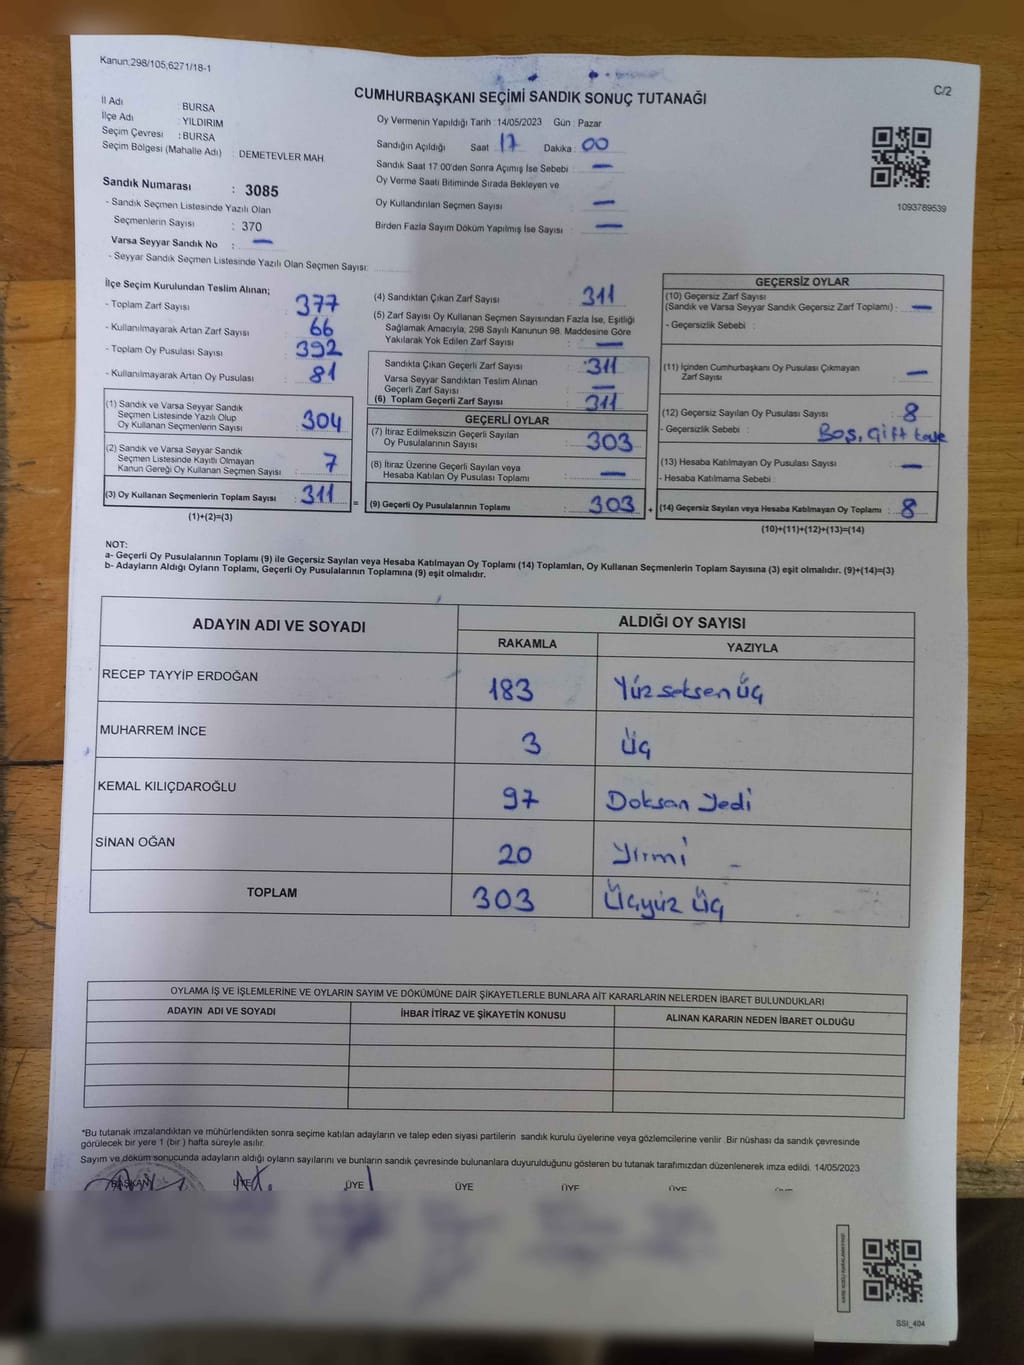 Kanun,298/105,6271/18-1
C/2
CUMHURBAŞKANI SEÇİMİ SANDIK SONUÇ TUTANAĞI
İl Adı : BURSA
İlçe Adı : YILDIRIM
Seçim Çevresi : BURSA
Seçim Bölgesi (Mahalle Adı) : DEMETEVLER MAH.
Sandık Numarası : 3085
- Sandık Seçmen Listesinde Yazılı Olan
Seçmenlerin Sayısı : 370
Varsa Seyyar Sandık No : —
- Seyyar Sandık Seçmen Listesinde Yazılı Olan Seçmen Sayısı:
Oy Vermenin Yapıldığı Tarih :14/05/2023 Gün : Pazar
Sandığın Açıldığı Saat 17 Dakika : 00
Sandık Saat 17:00'den Sonra Açımış İse Sebebi : —
Oy Verme Saati Bitiminde Sırada Bekleyen ve
Oy Kullandırılan Seçmen Sayısı : —
Birden Fazla Sayım Döküm Yapılmış İse Sayısı : —
1093789539
İlçe Seçim Kurulundan Teslim Alınan;
- Toplam Zarf Sayısı : 377
- Kullanılmayarak Artan Zarf Sayısı : 66
- Toplam Oy Pusulası Sayısı : 392
- Kullanılmayarak Artan Oy Pusulası : 81
(1) Sandık ve Varsa Seyyar Sandık
Seçmen Listesinde Yazılı Olup
Oy Kullanan Seçmenlerin Sayısı : 304
(2) Sandık ve Varsa Seyyar Sandık
Seçmen Listesinde Kayıtlı Olmayan
Kanun Gereği Oy Kullanan Seçmen Sayısı : 7
(3) Oy Kullanan Seçmenlerin Toplam Sayısı : 311
(1)+(2)=(3)
=
(4) Sandıktan Çıkan Zarf Sayısı : 311
(5) Zarf Sayısı Oy Kullanan Seçmen Sayısından Fazla İse, Eşitliği
Sağlamak Amacıyla, 298 Sayılı Kanunun 98. Maddesine Göre
Yakılarak Yok Edilen Zarf Sayısı : —
Sandıkta Çıkan Geçerli Zarf Sayısı : 311
Varsa Seyyar Sandıktan Teslim Alınan
Geçerli Zarf Sayısı : —
(6) Toplam Geçerli Zarf Sayısı : 311
GEÇERLİ OYLAR
(7) İtiraz Edilmeksizin Geçerli Sayılan
Oy Pusulalarının Sayısı : 303
(8) İtiraz Üzerine Geçerli Sayılan veya
Hesaba Katılan Oy Pusulası Toplamı : —
(9) Geçerli Oy Pusulalarının Toplamı : 303
+
GEÇERSİZ OYLAR
(10) Geçersiz Zarf Sayısı
(Sandık ve Varsa Seyyar Sandık Geçersiz Zarf Toplamı) : —
- Geçersizlik Sebebi :
(11) İçinden Cumhurbaşkanı Oy Pusulası Çıkmayan
Zarf Sayısı : —
(12) Geçersiz Sayılan Oy Pusulası Sayısı : 8
- Geçersizlik Sebebi : Boş, Çift kaşe
(13) Hesaba Katılmayan Oy Pusulası Sayısı : —
- Hesaba Katılmama Sebebi :
(14) Geçersiz Sayılan veya Hesaba Katılmayan Oy Toplamı : 8
(10)+(11)+(12)+(13)=(14)
NOT:
a- Geçerli Oy Pusulalarının Toplamı (9) ile Geçersiz Sayılan veya Hesaba Katılmayan Oy Toplamı (14) Toplamları, Oy Kullanan Seçmenlerin Toplam Sayısına (3) eşit olmalıdır. (9)+(14)=(3)
b- Adayların Aldığı Oyların Toplamı, Geçerli Oy Pusulalarının Toplamına (9) eşit olmalıdır.
ADAYIN ADI VE SOYADI
ALDIĞI OY SAYISI
RAKAMLA YAZIYLA
RECEP TAYYİP ERDOĞAN 183 Yüz seksen üç
MUHARREM İNCE 3 üç
KEMAL KILIÇDAROĞLU 97 Doksan Yedi
SİNAN OĞAN 20 Yirmi
TOPLAM 303 Üçyüz üç
OYLAMA İŞ VE İŞLEMLERİNE VE OYLARIN SAYIM VE DÖKÜMÜNE DAİR ŞİKAYETLERLE BUNLARA AİT KARARLARIN NELERDEN İBARET BULUNDUKLARI
ADAYIN ADI VE SOYADI İHBAR İTİRAZ VE ŞİKAYETİN KONUSU ALINAN KARARIN NEDEN İBARET OLDUĞU
*Bu tutanak imzalandıktan ve mühürlendikten sonra seçime katılan adayların ve talep eden siyasi partilerin sandık kurulu üyelerine veya gözlemcilerine verilir .Bir nüshası da sandık çevresinde
görülecek bir yere 1 (bir ) hafta süreyle asılır.
Sayım ve döküm sonucunda adayların aldığı oyların sayılarını ve bunların sandık çevresinde bulunanlara duyurulduğunu gösteren bu tutanak tarafımızdan düzenlenerek imza edildi. 14/05/2023
BAŞKAN ÜYE ÜYE ÜYE ÜYE ÜYE
SSI_404